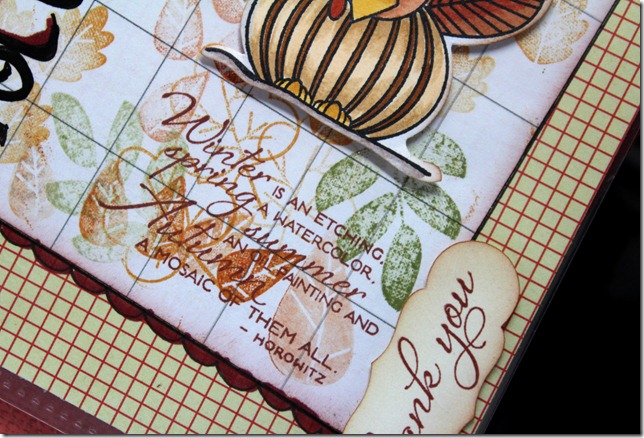 Winter IS AN ETCHING,
spring A WATERCOLOR,
summer AN OIL PAINTING AND
Autumn A MOSAIC OF THEM ALL.
- HOROWITZ
you